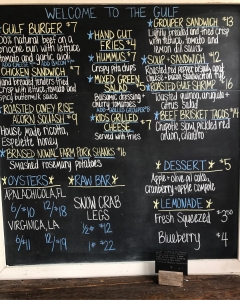 WELCOME TO THE GULF
GULF BURGER $7
100% natural beef on a
brioche bun with lettuce
tomato and garlic aioli
CHICKEN SANDWICH $7
Hand breaded tenders fried
crisp with lettuce, tomato and
spicy buttermilk sauce
ROASTED COVEY RISE
ACORN SQUASH $9
House made ricotta,
Espelette, honey
BRAISED NIMAN FARM PORK SHANKS $16
Smashed rosemary potatoes
OYSTERS
APALACHICOLA, FL
6/$10 12/$18
VIRGINICA, LA
6/$11 12/$19
HAND CUT
FRIES $4
HUMMUS 7
Crispy pita chips
MIXED GREEN
SALAD
Balsamic dressing
cherry tomatoes
KIDS GRILLED
CHEESE 7
Served with fries
RAW BAR
SNOW CRAB
LEGS
½# $12
1# $22
GROUPER SANDWICH $13
Lightly breaded and fried crisp
with lettuce, tomato and
lemon dill sauce
SOUP + SANDWICH $12
ROASTED GULF SHRIMP $16
Toasted quinoa, arugula +
citrus salad
BEEF BRISKET TACOS $14
Chipotle slaw, pickled red
onion, cilantro
DESSERT $5
Apple + olive oil cake,
cranberry + apple compote
LEMONADE
Fresh Squeezed $3.50
Blueberry $4